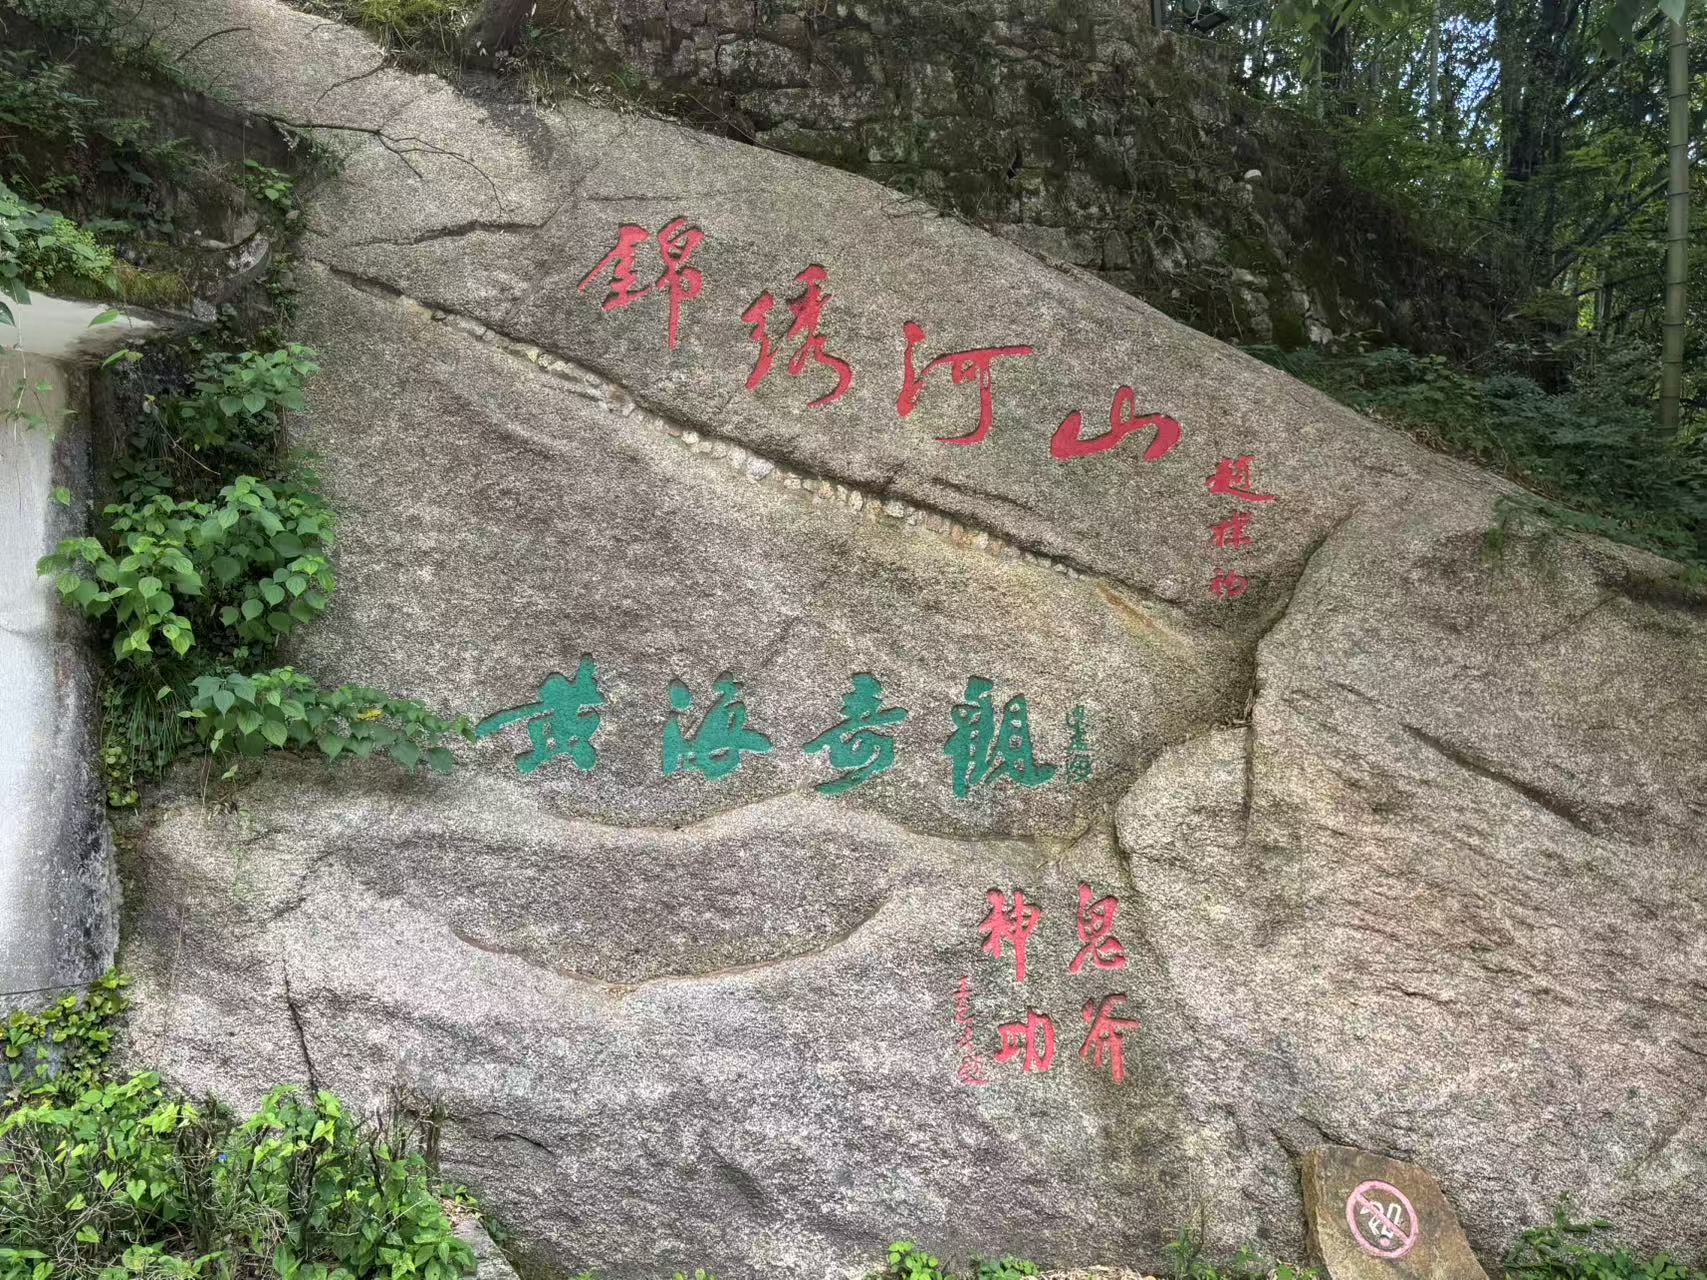 錦绣河山
趙樸初
黄海奇觀
鬼斧
神功